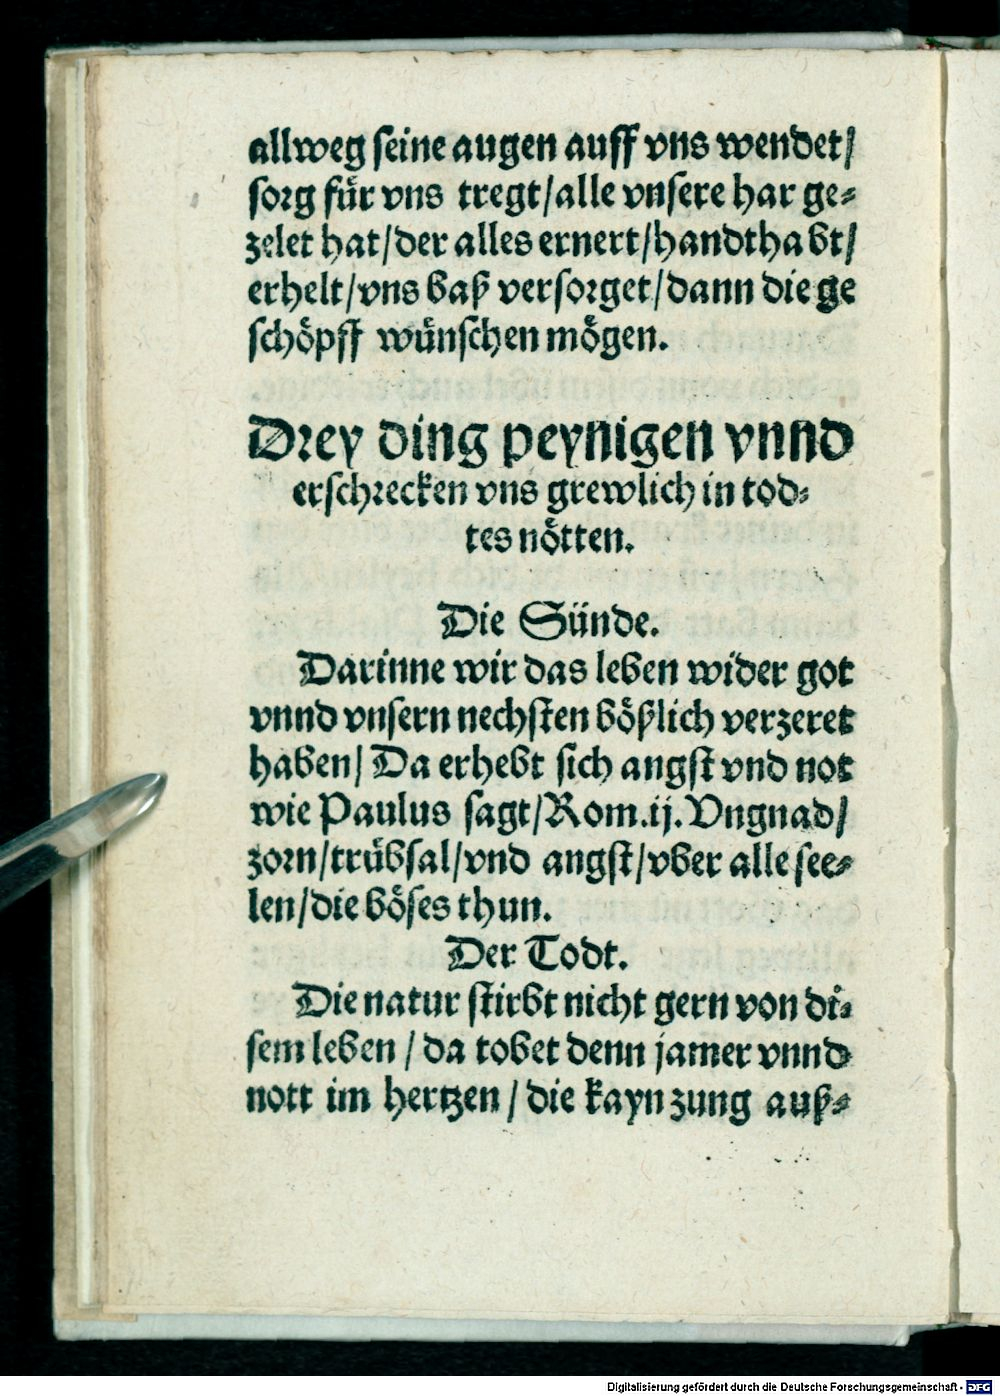 allweg seine augen auff vns wendet/
sorg für vns tregt/alle vnsere har ge⸗
zelet hat/der alles ernert/handthabt/
erhelt/vns baß versorget/dann die ge
schöpff wünschen mögen.
Drey ding peynigen vnnd
erschrecken vns grewlich in tod⸗
tes nötten.
Die Sünde.
Darinne wir das leben wider got
vnnd vnsern nechsten bößlich verzeret
haben/ Da erhebt sich angst vnd not
wie Paulus sagt/Rom.ij. Vngnad/
zorn/trübsal/vnd angst/vber alle see⸗
len/die böses thun.
Der Todt.
Die natur stirbt nicht gern von di⸗
sem leben / da tobet denn jamer vnnd
nott im hertzen / die kayn zung auß⸗
Digitalisierung gefördert durch die Deutsche Forschungsgemeinschaft - DFG